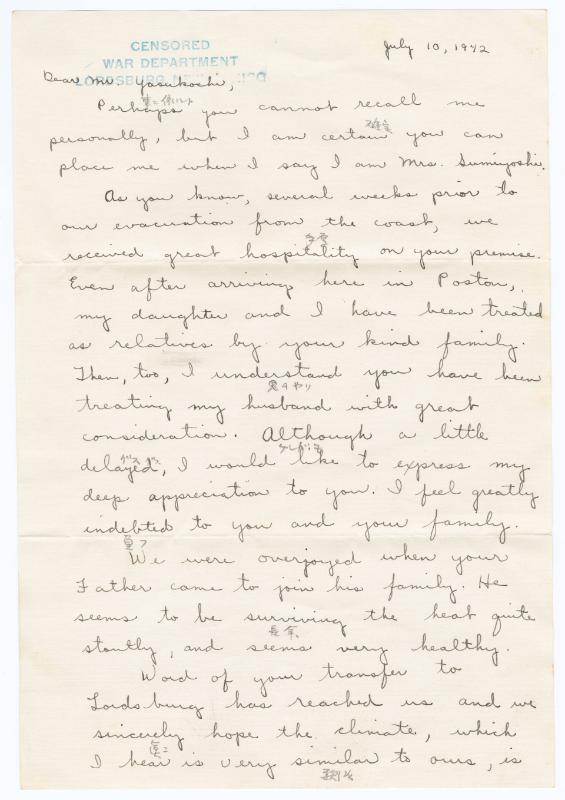 July 10, 1942
CENSORED
WAR DEPARTMENT
LORDSBURG NEW MEXICO
Dear Mr. Yasukochi,
Perhaps you cannot recall me
personally, but I am certain you can
確実
place me when I say I am Mrs. Sumiyoshi.
As you know, several weeks prior to
our evacuation from the coast, we
received great hospitality on your premise.
Even after arriving here in Poston,
my daughter and I have been treated
as relatives by your kind family.
Then, too, I understand you have been
treating my husband with great
思イヤリ
consideration. Although a little
delayed, I would like to express my
deep appreciation to you. I feel greatly
indebted to you and your family.
We were overjoyed when your
Father came to join his family. He
seems to be surviving the heat quite
stoutly, and seems very healthy.
Word of your transfer to
Lordsburg has reached us and we
sincerely hope the climate, which
I hear is very similar to ours, is